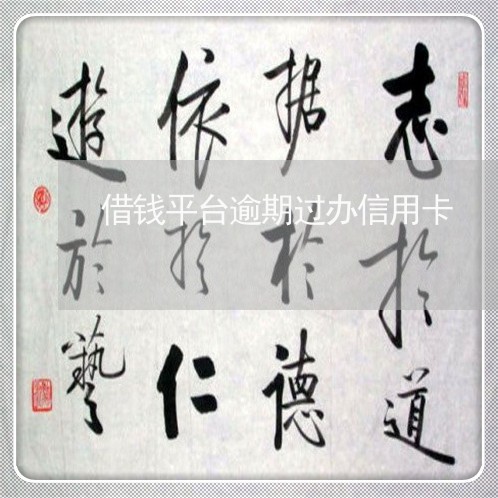 志於道
据於德
依於仁
遊於藝
借钱平台逾期过办信用卡